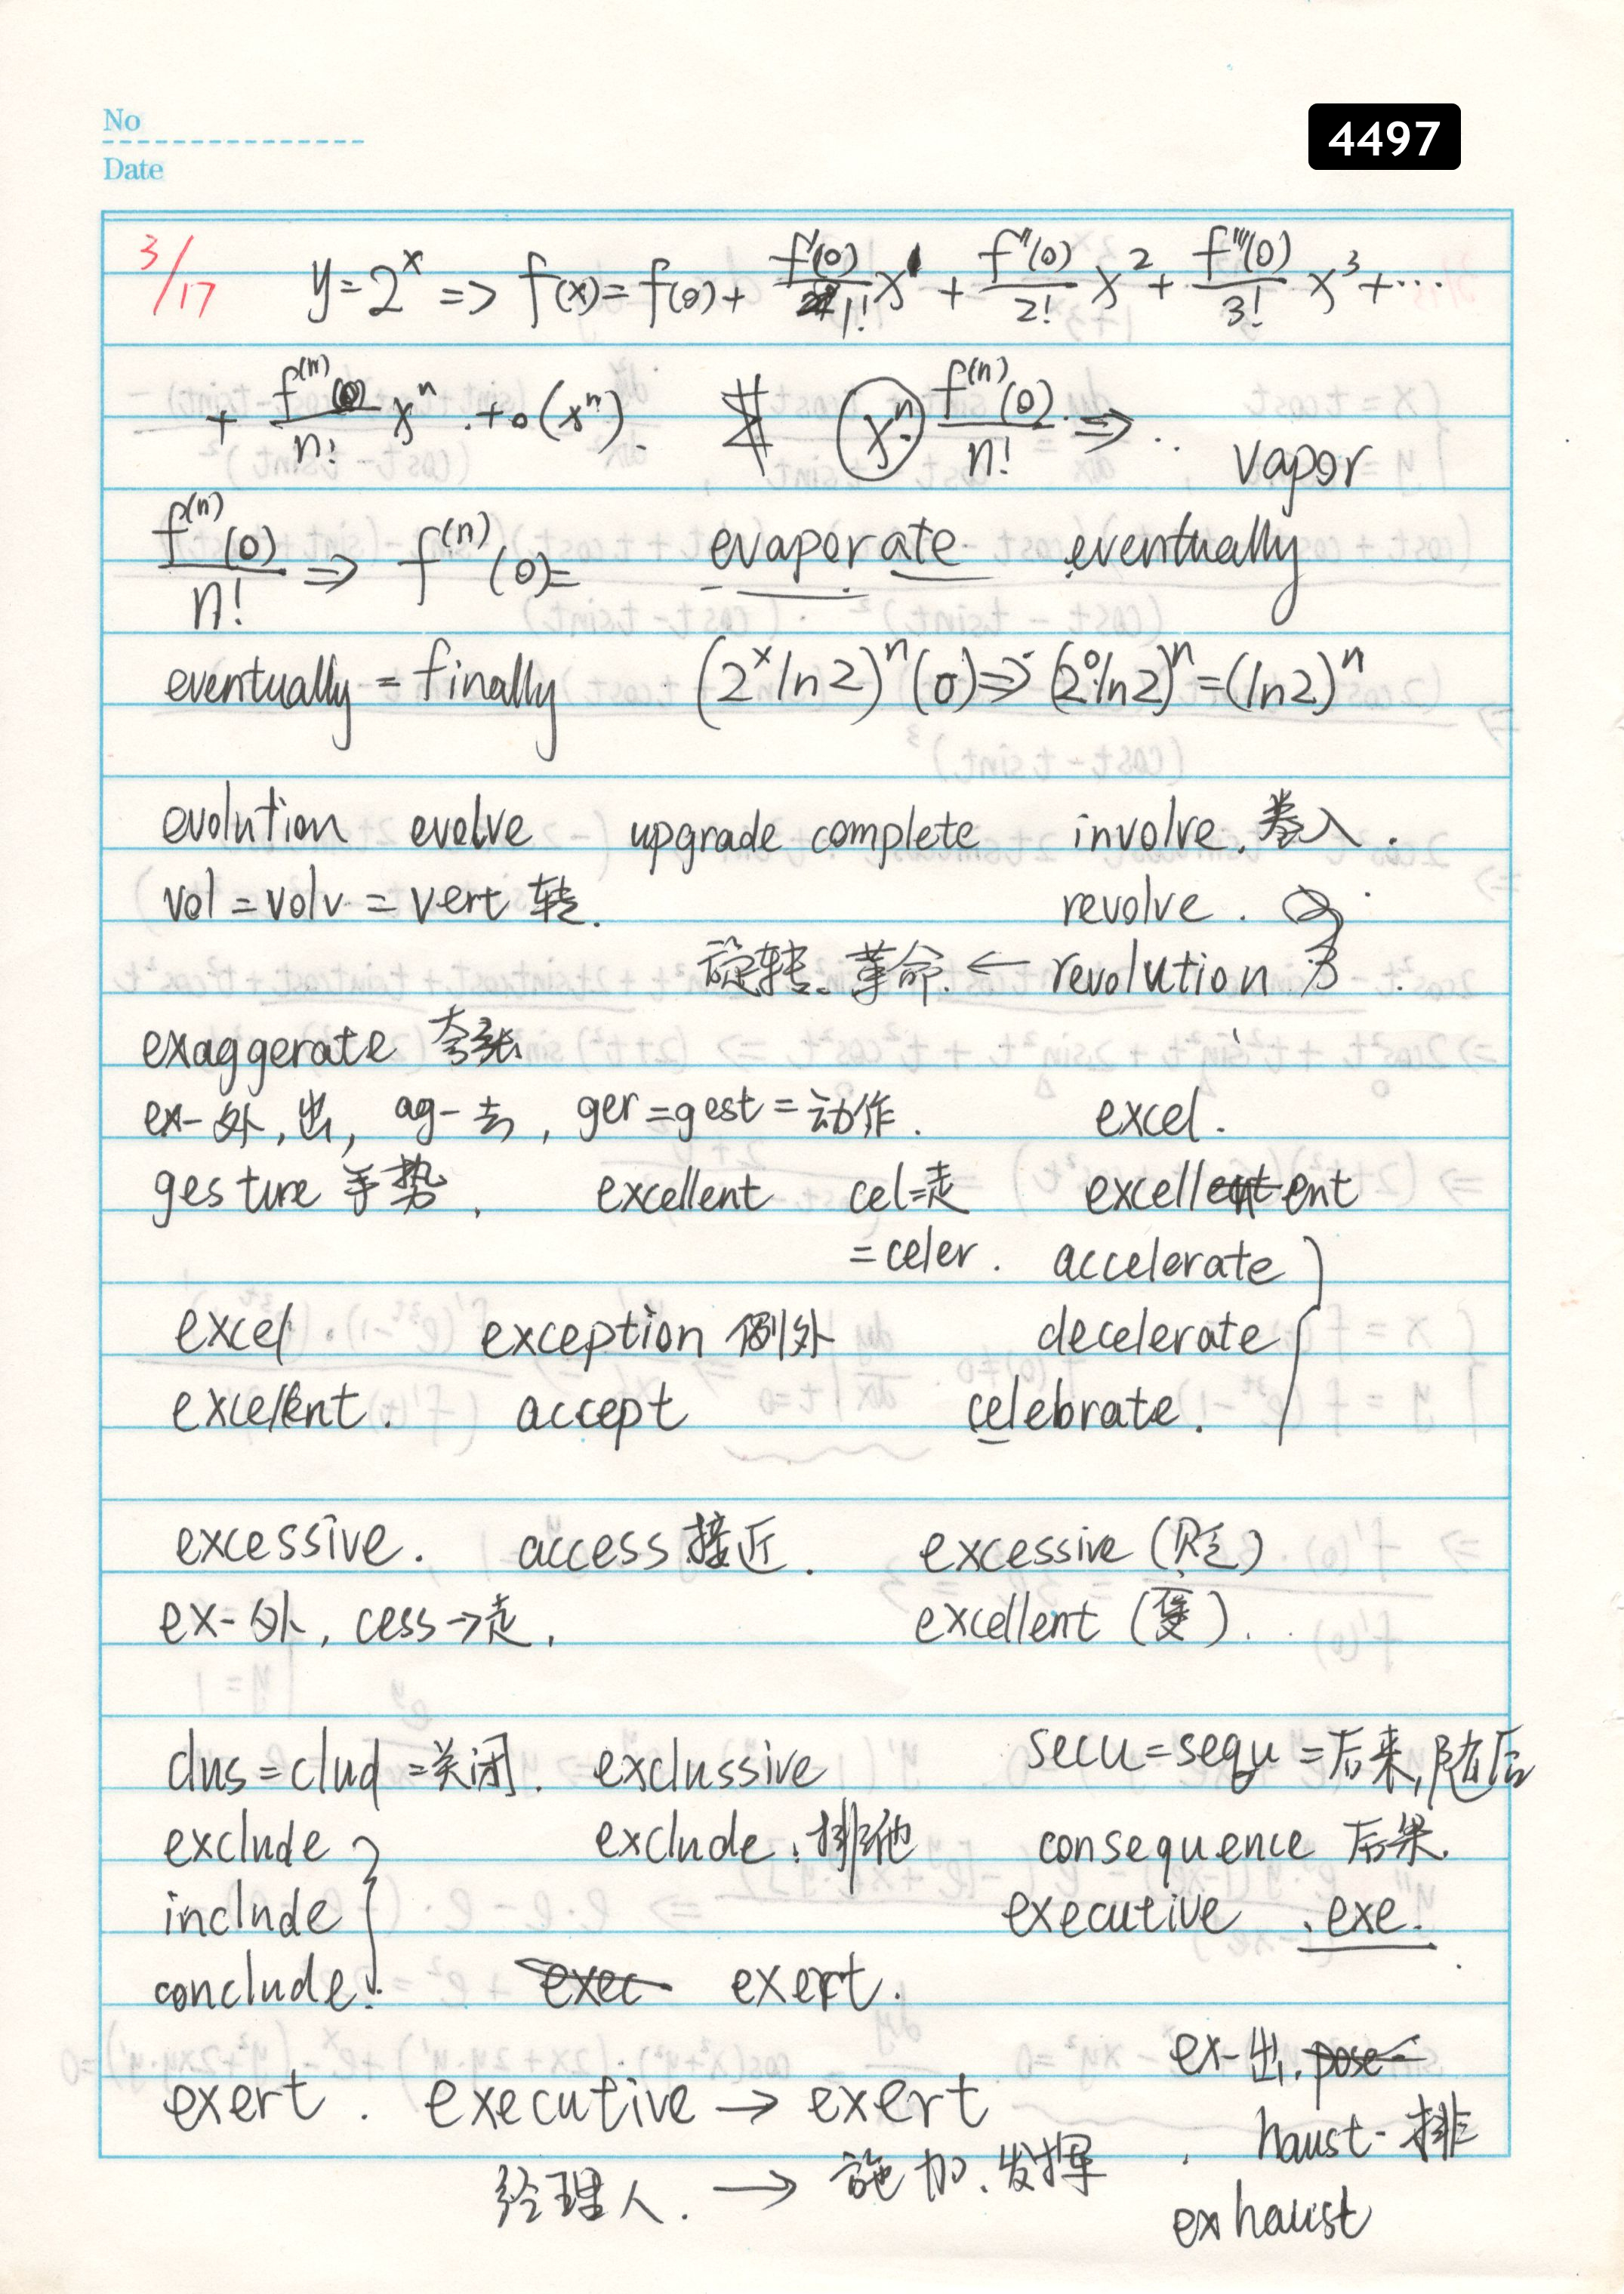 No
Date
4497
3/17
y=2^x => f(x)=f(0)+ f'(0)/1! x^1 + f''(0)/2! x^2 + f'''(0)/3! x^3+…
+ f^(n)(0)/n! x^n + o(x^n). x^n f^(n)(0)/n! => vapor
f^(n)(0)/n! => f^(n)(0)= evaporate eventually
eventually = finally (2^x ln2)^n (0) => (2^0 ln2)^n = (ln2)^n
evolution evolve upgrade complete involve. 卷入.
vol = volv = vert 转. revolve.
旋转、革命. ← revolution
exaggerate 夸张
ex-外,出, ag-去, ger=gest=动作. excel.
gesture 手势. excellent cel=走 excellent ent
=celer. accelerate
excel exception 例外 decelerate
excellent. accept celebrate.
excessive. access 接近. excessive (贬)
ex-外, cess→走. excellent (褒).
clus=clud=关闭. exclussive secu=sequ=后来,随后
exclude exclude.排他 consequence 后果.
include executive .exe.
conclude. exec exert.
ex-出. pose
exert. executive → exert
haust-排
经理人. → 施加、发挥
exhaust